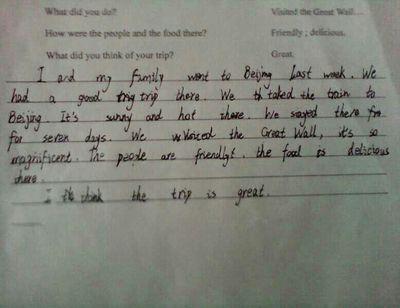 What did you do? Visited the Great Wall...
How were the people and the food there? Friendly ; delicious.
What did you think of your trip? Great.
I and my family went to Beijing last week. We
had a good trip there. We taked the train to
Beijing. It's sunny and hot there. We stayed there
for seven days. We visited the Great Wall, it's so
magnificent. The people are friendly. the food is delicious
there.
I think the trip is great.